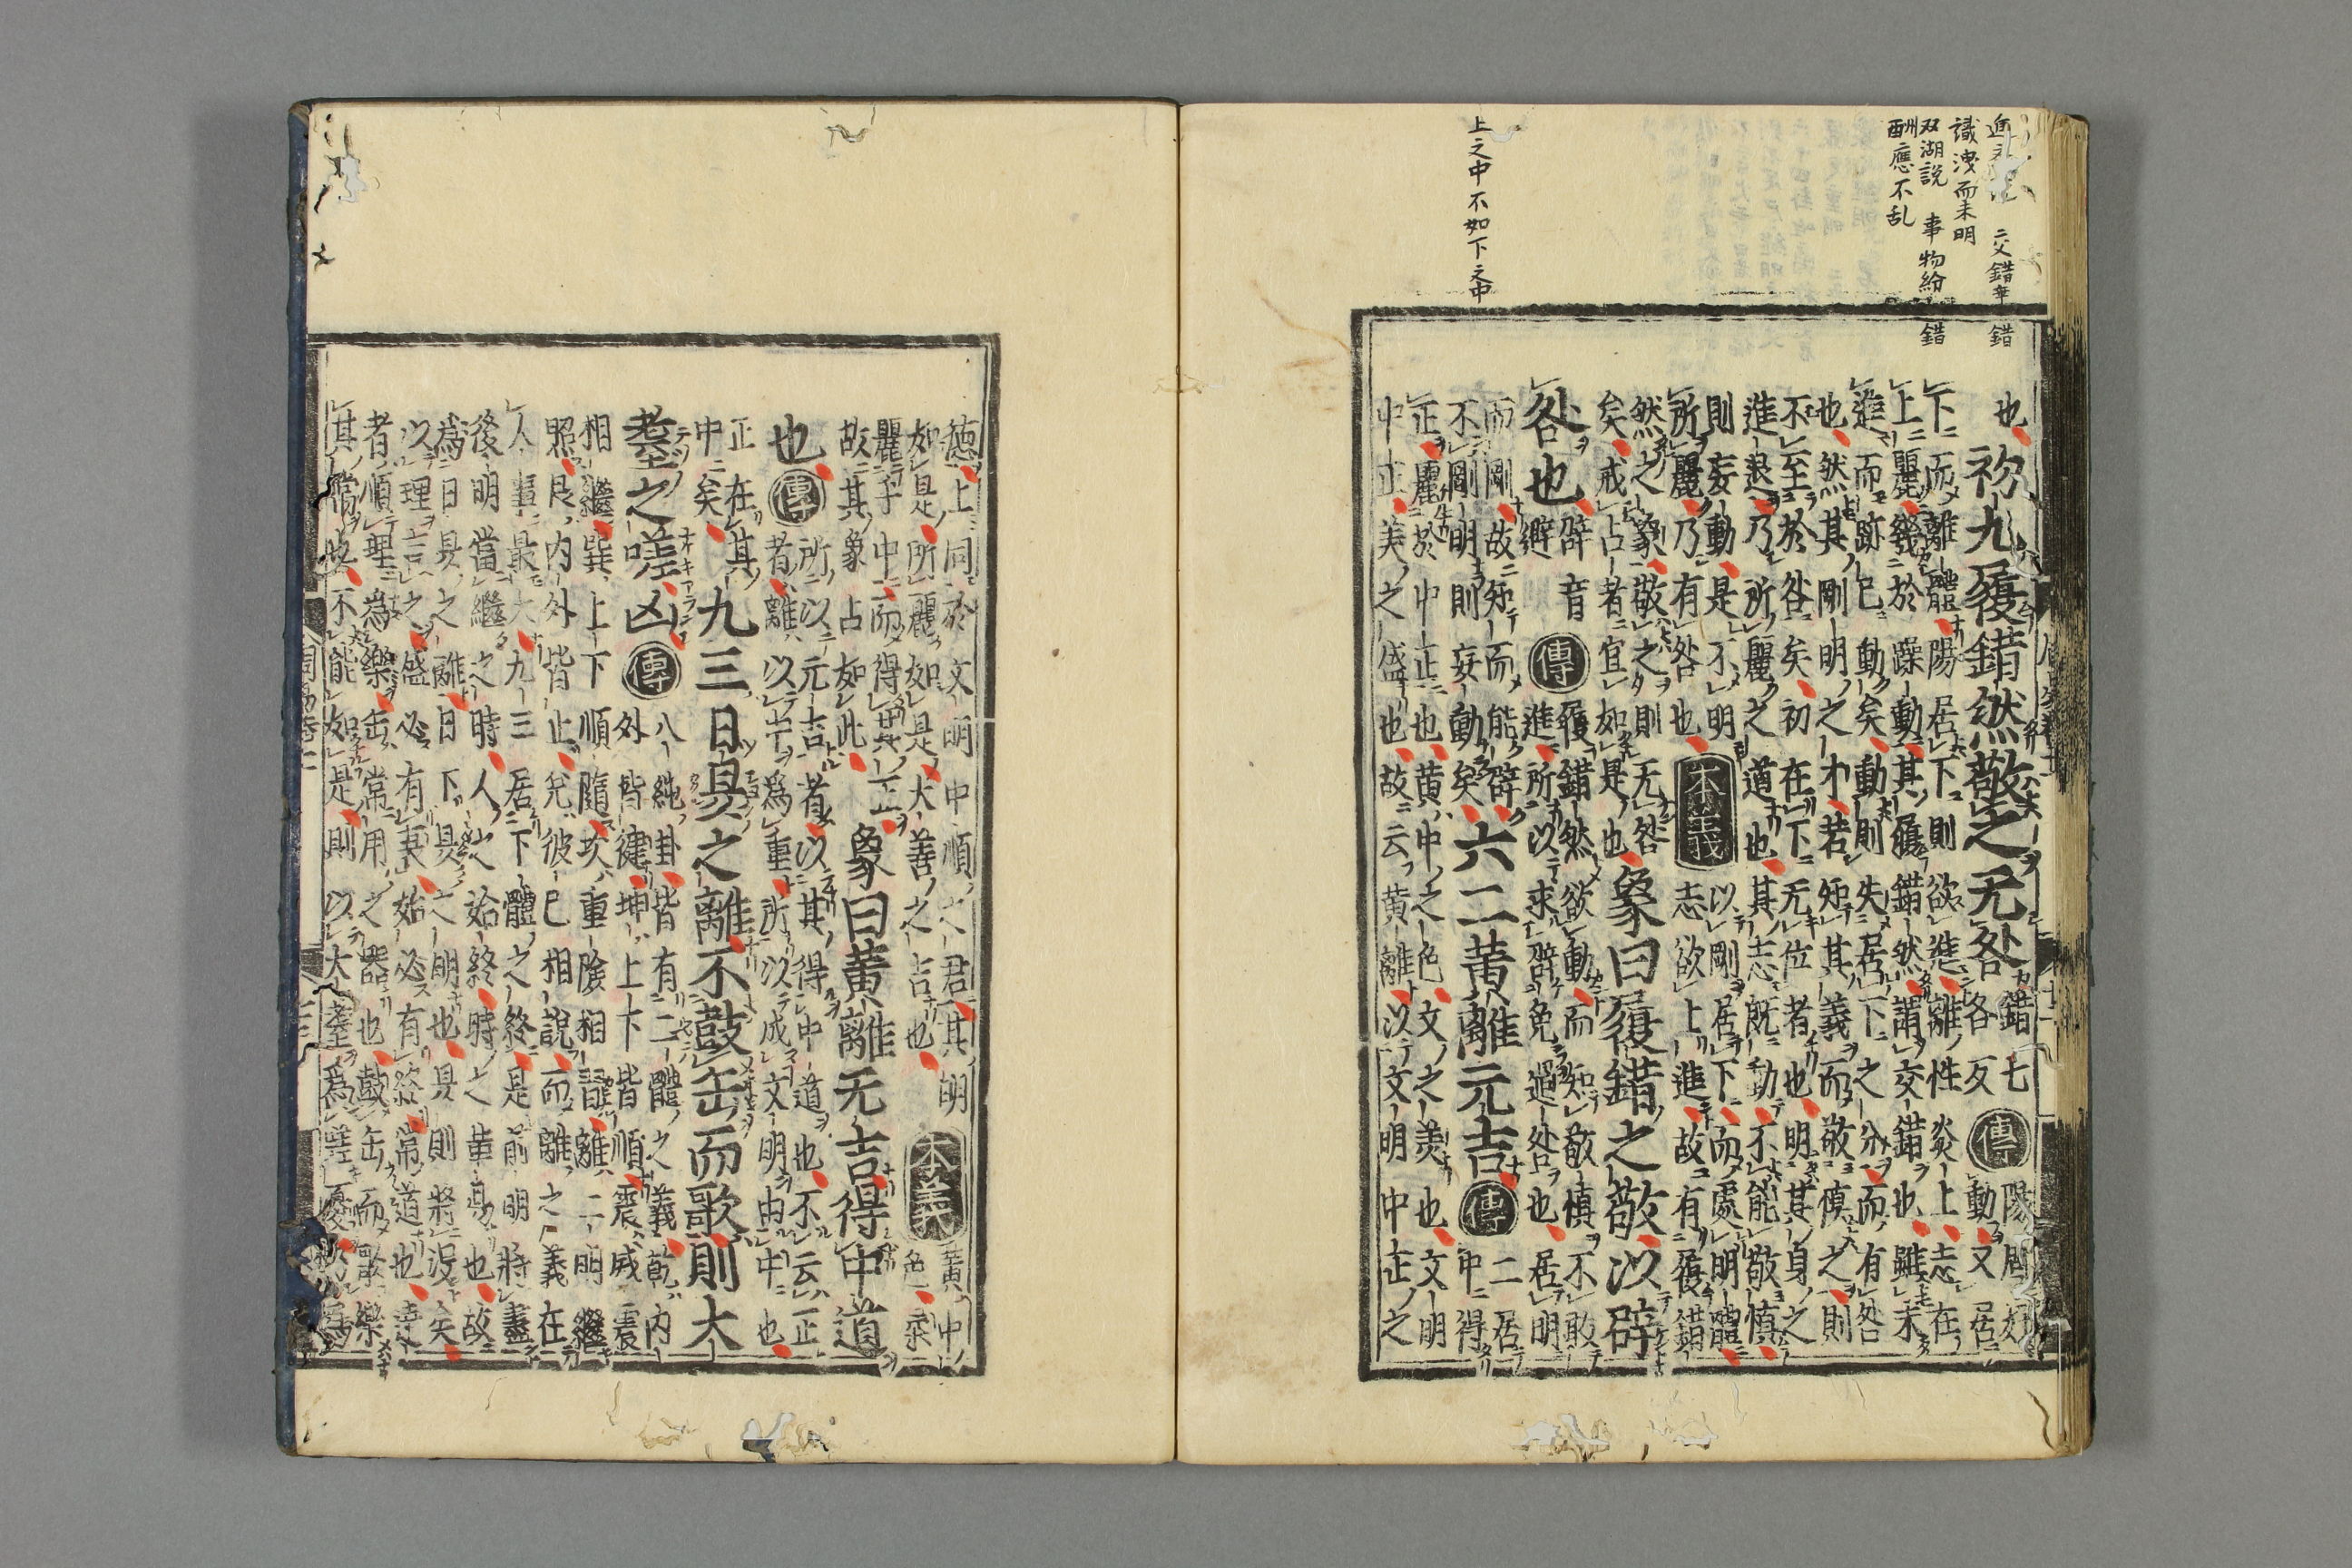 識淺而未明
双湖説 事物紛錯
酬應不乱
上之中不如下之中
也初九履錯然敬之无咎錯七各反傳陽居動又居
下而離體陽居下則欲進離性炎上志在
上麗幾於躁動其履錯然謂交錯也雖未
進而跡已動矣動則失居下之分而有咎
也然其剛明之才若知其義而敬慎之則
不至於咎矣初在下无位者也明其身之
進退乃所麗之道也其志既動不能敬慎
則妄動是不明所麗乃有咎也本義以剛居下而處明體志欲上進故有履錯
然之象敬之則无咎矣戒占者宜如是也象曰履錯之敬以辟
咎也辟音避傳履錯然欲動而知敬慎不敢進所以求辟咎免過咎也居明
而剛故知而能辟不剛明則妄動矣六二黃離元吉傳二居中得
正麗於中正也黃中之色文之美也文明
中正美之盛也故云黃離以文明中正之
德上同於文明中順之君其明
如是所麗如是大善之吉也本義黃中色柔
麗乎中而得其正故其象占如此象曰黃離元吉得中道
也傳所以元吉者以其得中道也不云正者離以中爲重所以成文明由中也
正在其中矣九三日昃之離不鼓缶而歌則大
耋之嗟凶傳八純卦皆有二體之義乾內外皆健坤上下皆順震威震
相繼巽上下順隨坎重險相習離二明繼
照艮內外皆止兌彼己相說而離之義在
人事最大九三居下體之終是前明將盡
後明當繼之時人之始終時之革易也故
爲日昃之離日下昃之明也昃則將沒矣
以理言之盛必有衰始必有終常道也達
者順理爲樂缶常用之器也鼓缶而歌樂
其常也不能如是則以大耋爲嗟憂乃爲